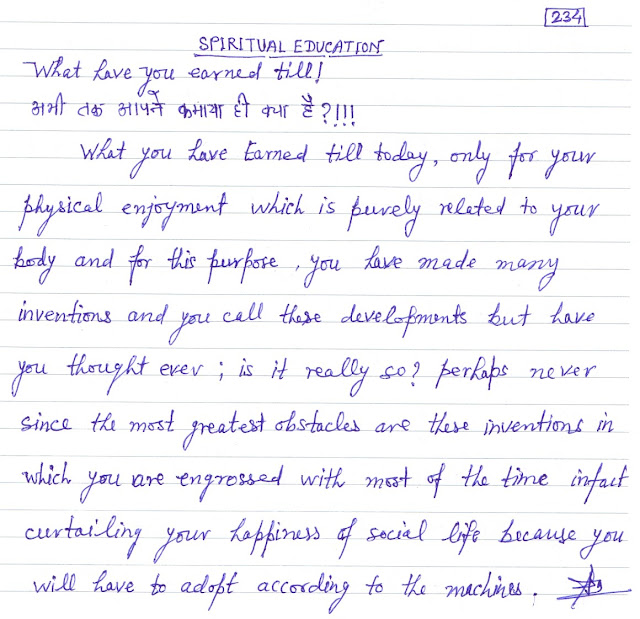 234
SPIRITUAL EDUCATION
What have you earned till!
अभी तक आपने कमाया ही क्या है?!!!
What you have Earned till today, only for your
physical enjoyment which is purely related to your
body and for this purpose, you have made many
inventions and you call these developments but have
you thought ever; is it really so? perhaps never
since the most greatest obstacles are these inventions in
which you are engrossed with most of the time infact
curtailing your happiness of social life because you
will have to adopt according to the machines.